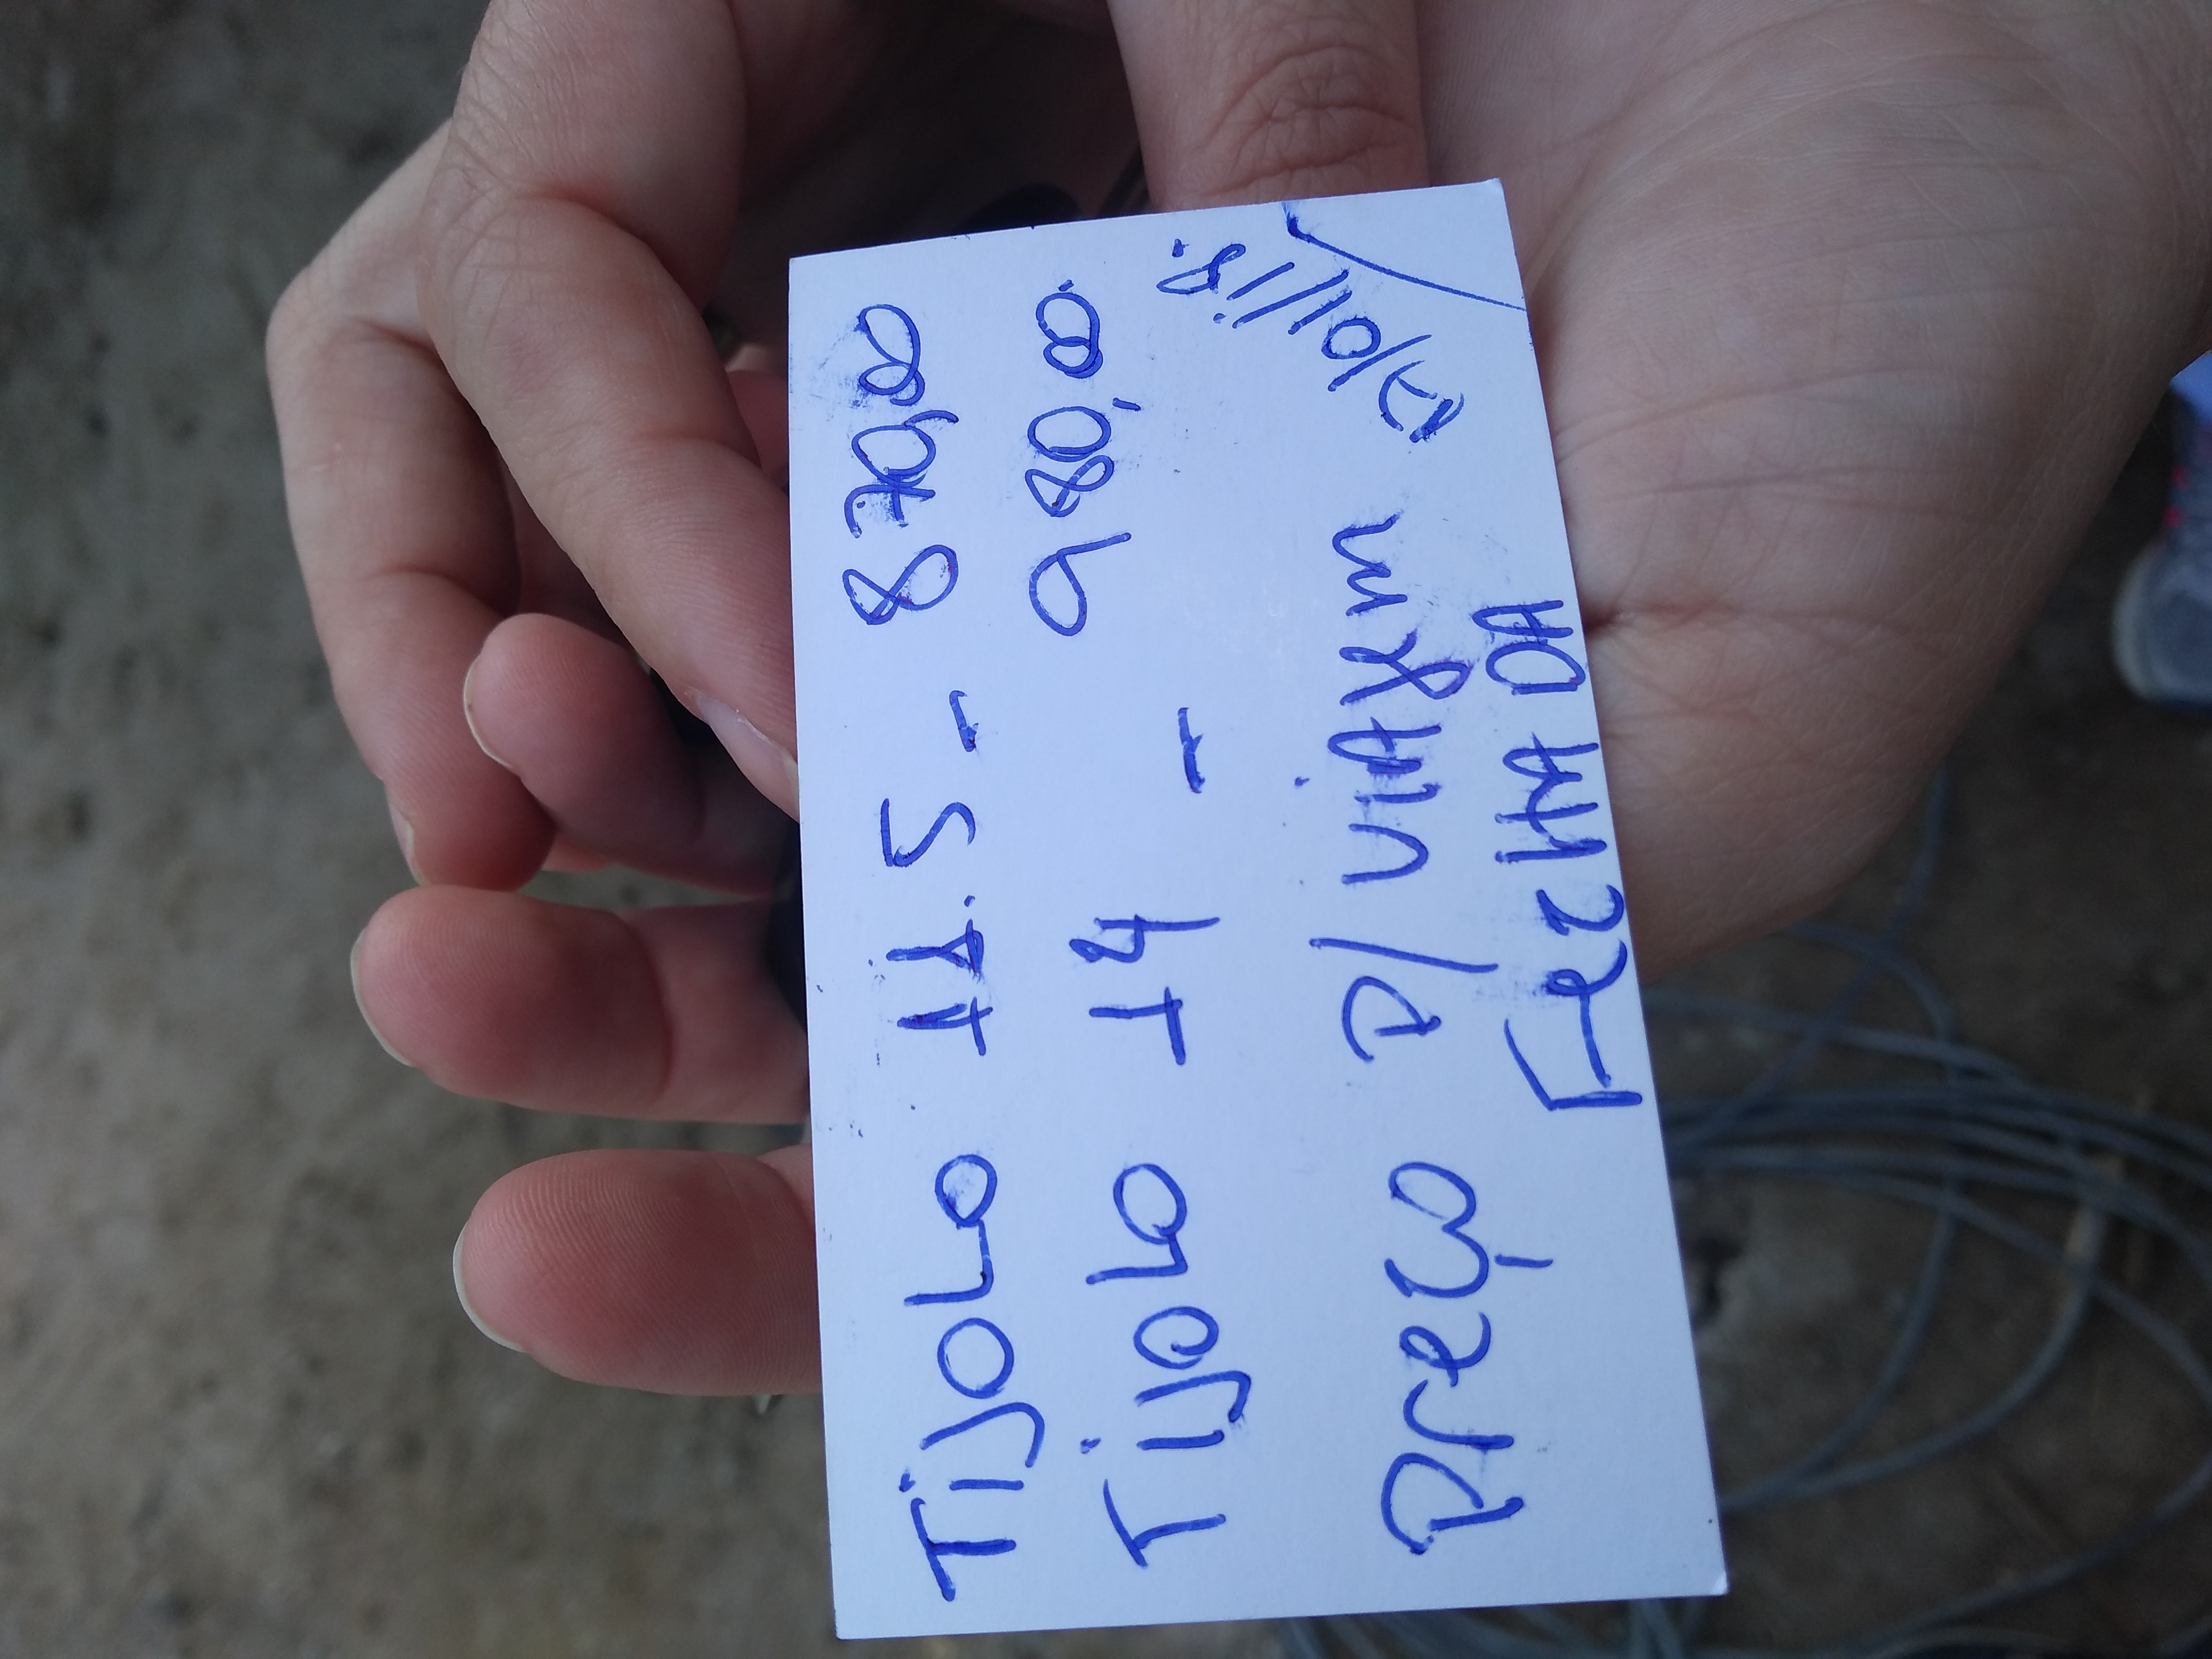 Tijolo 11.5 - 870,00
Tijolo 14 - 980,00.
Preço P/ Viajem
Fechada
17/01/18.